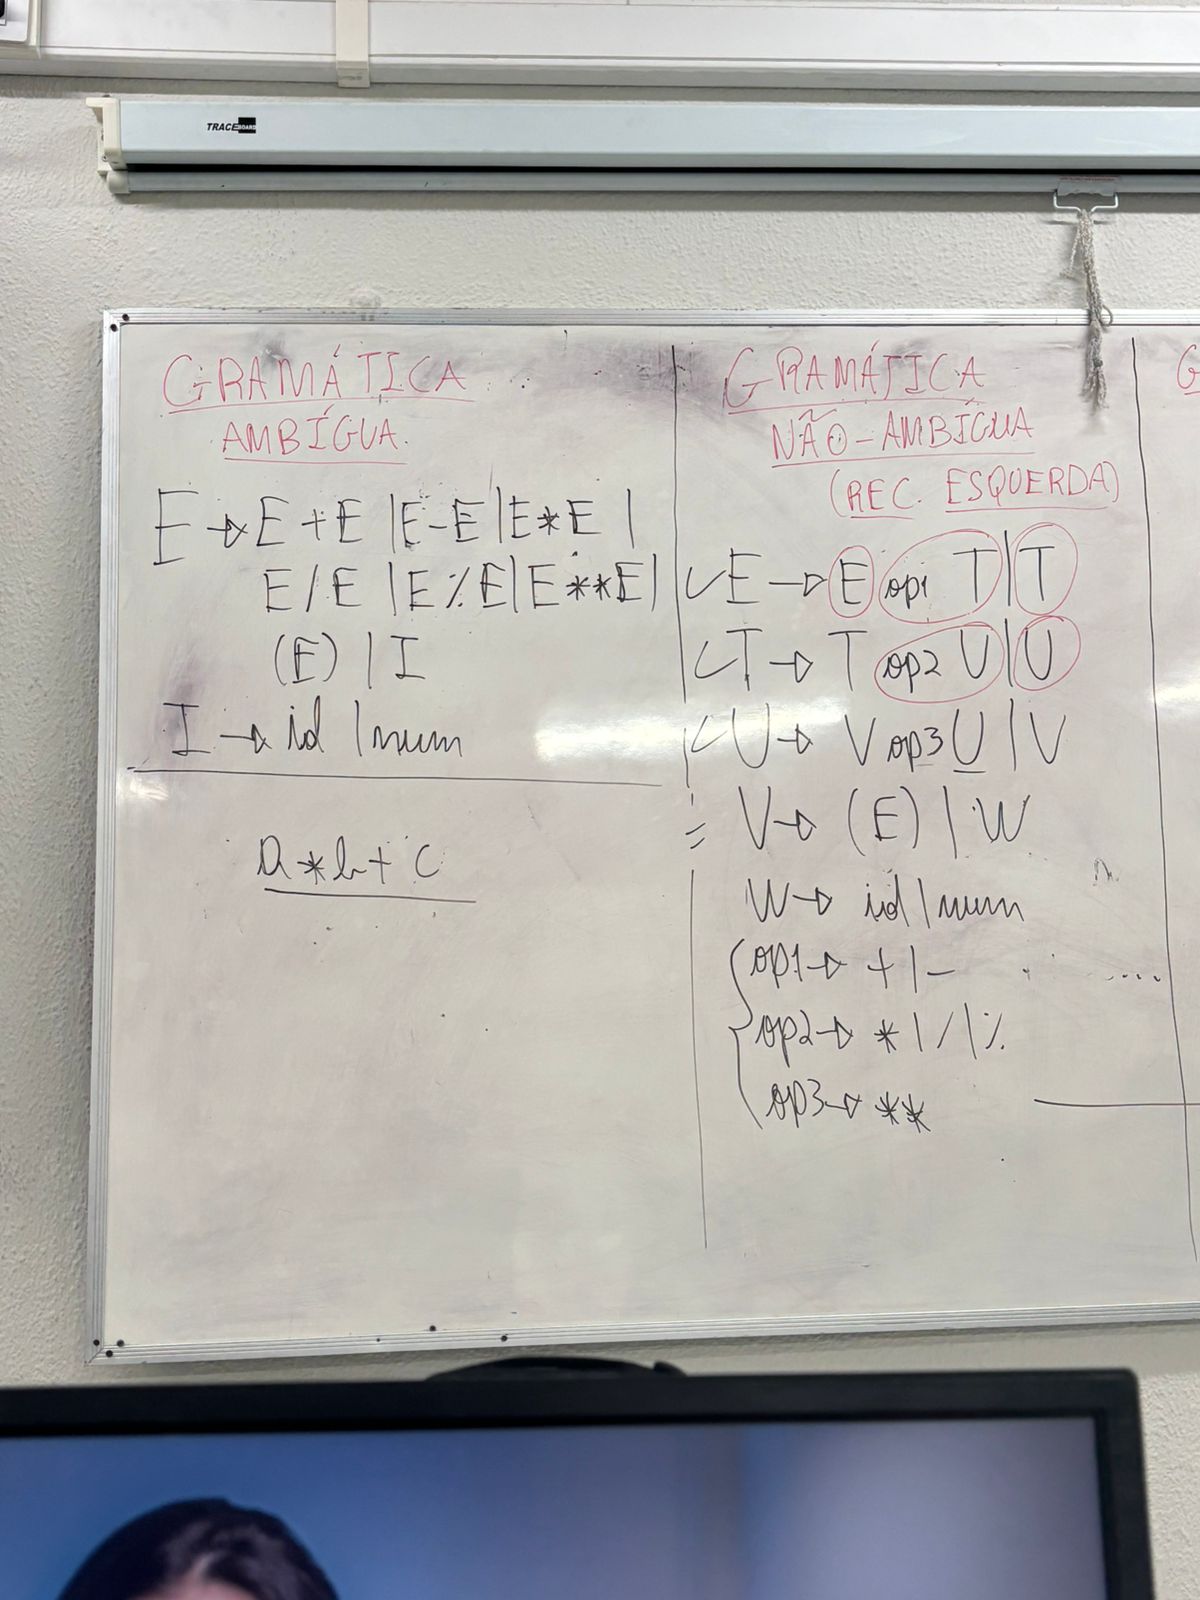 TRACEBOARD
GRAMÁTICA
AMBÍGUA.
E → E + E | E - E | E * E |
E / E | E % E | E ** E |
(E) | I
I → id | num
a * b + c
GRAMÁTICA
NÃO-AMBÍGUA
(REC. ESQUERDA)
E → E op1 T | T
T → T op2 U | U
U → V op3 U | V
V → (E) | W
W → id | num
op1 → + | -
op2 → * | / | %
op3 → **
G